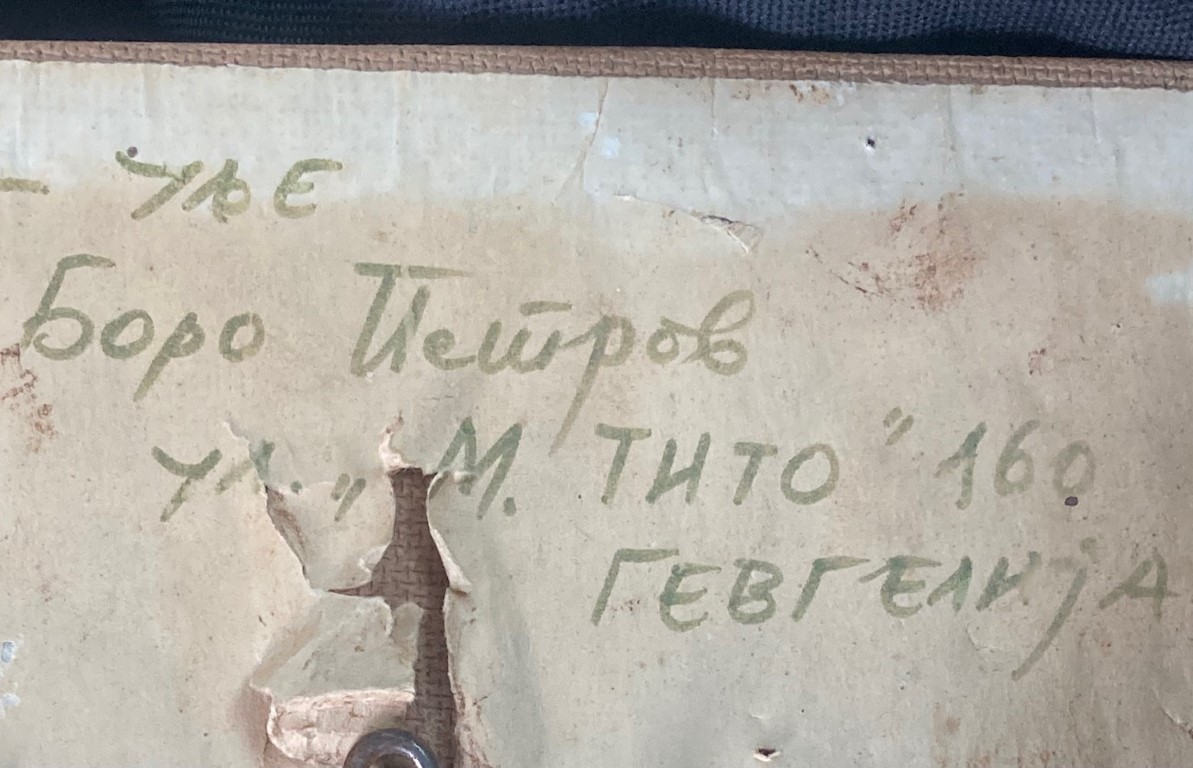 - УЉЕ
Боро Петров
ул. „М. ТИТО" 160
ГЕВГЕЛИЈА